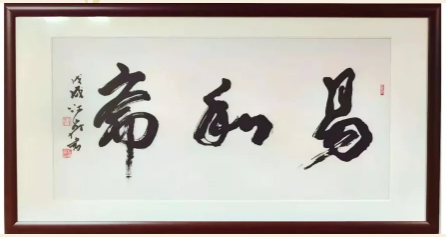 易和斋
戊戌